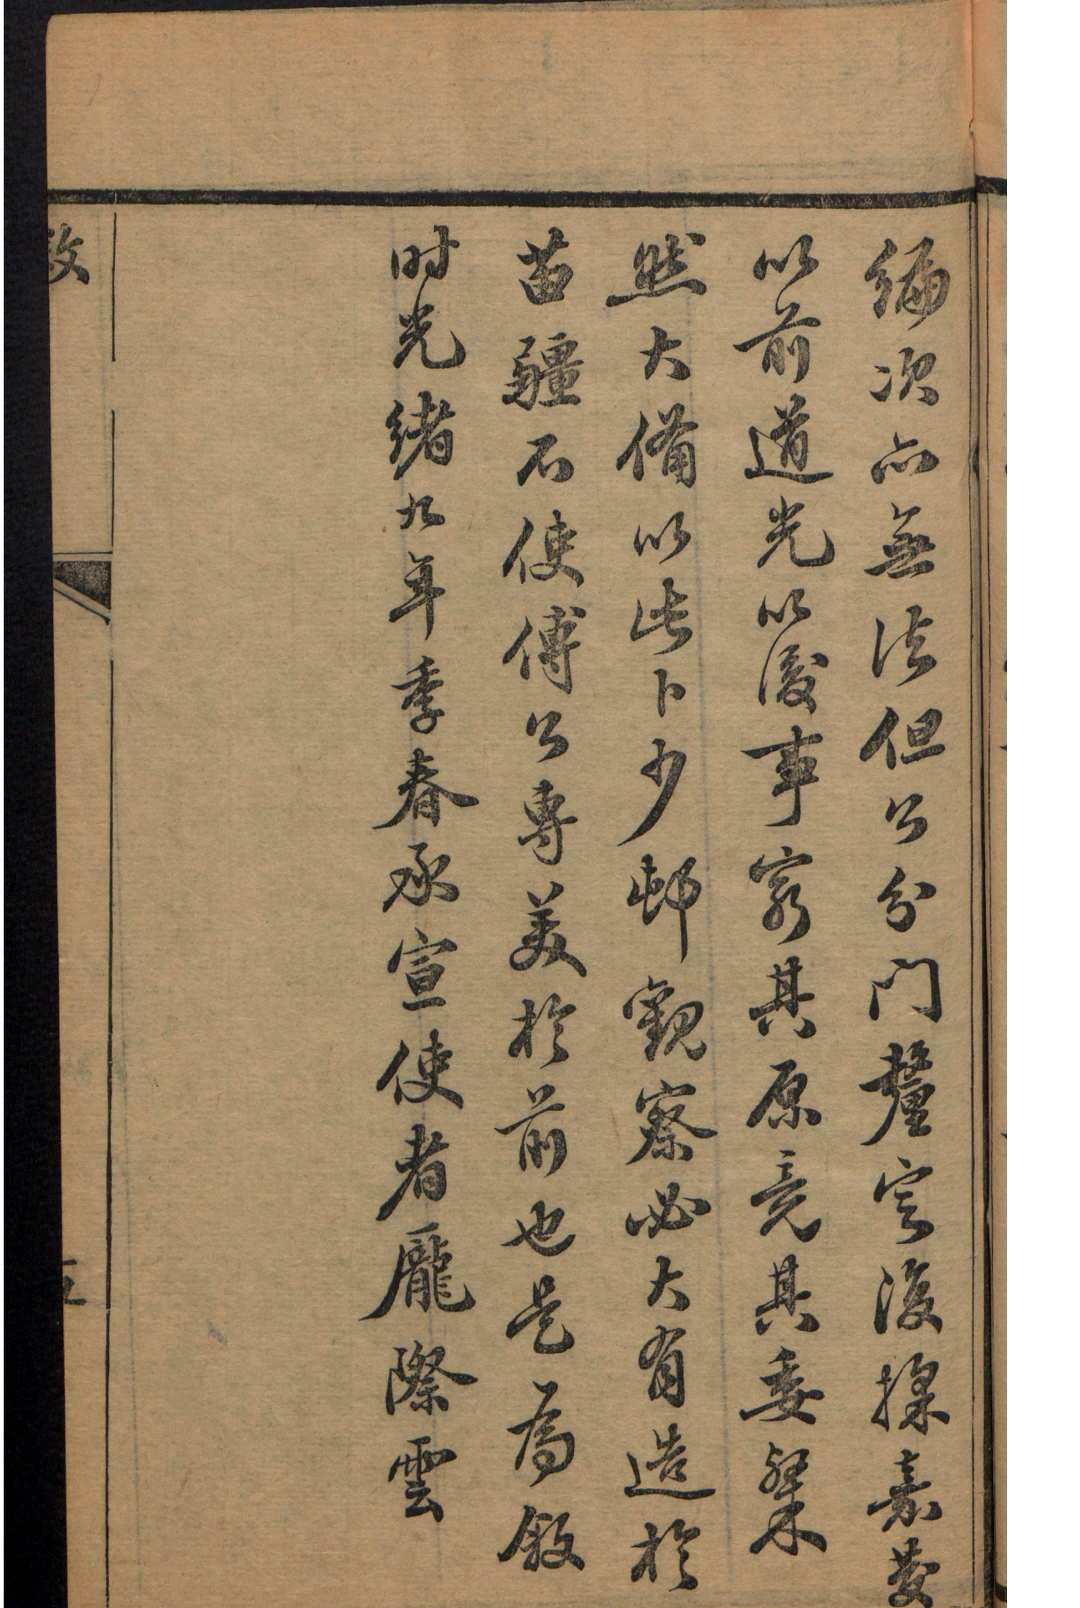 編次亦無法但公分門釐定復採嘉慶
以前道光以後事窮其原竟其委粲
然大備以此卜少邨觀察必大有造於
苗疆不使傅公專美於前也是為敘
时光緒九年季春承宣使者龐際雲
五